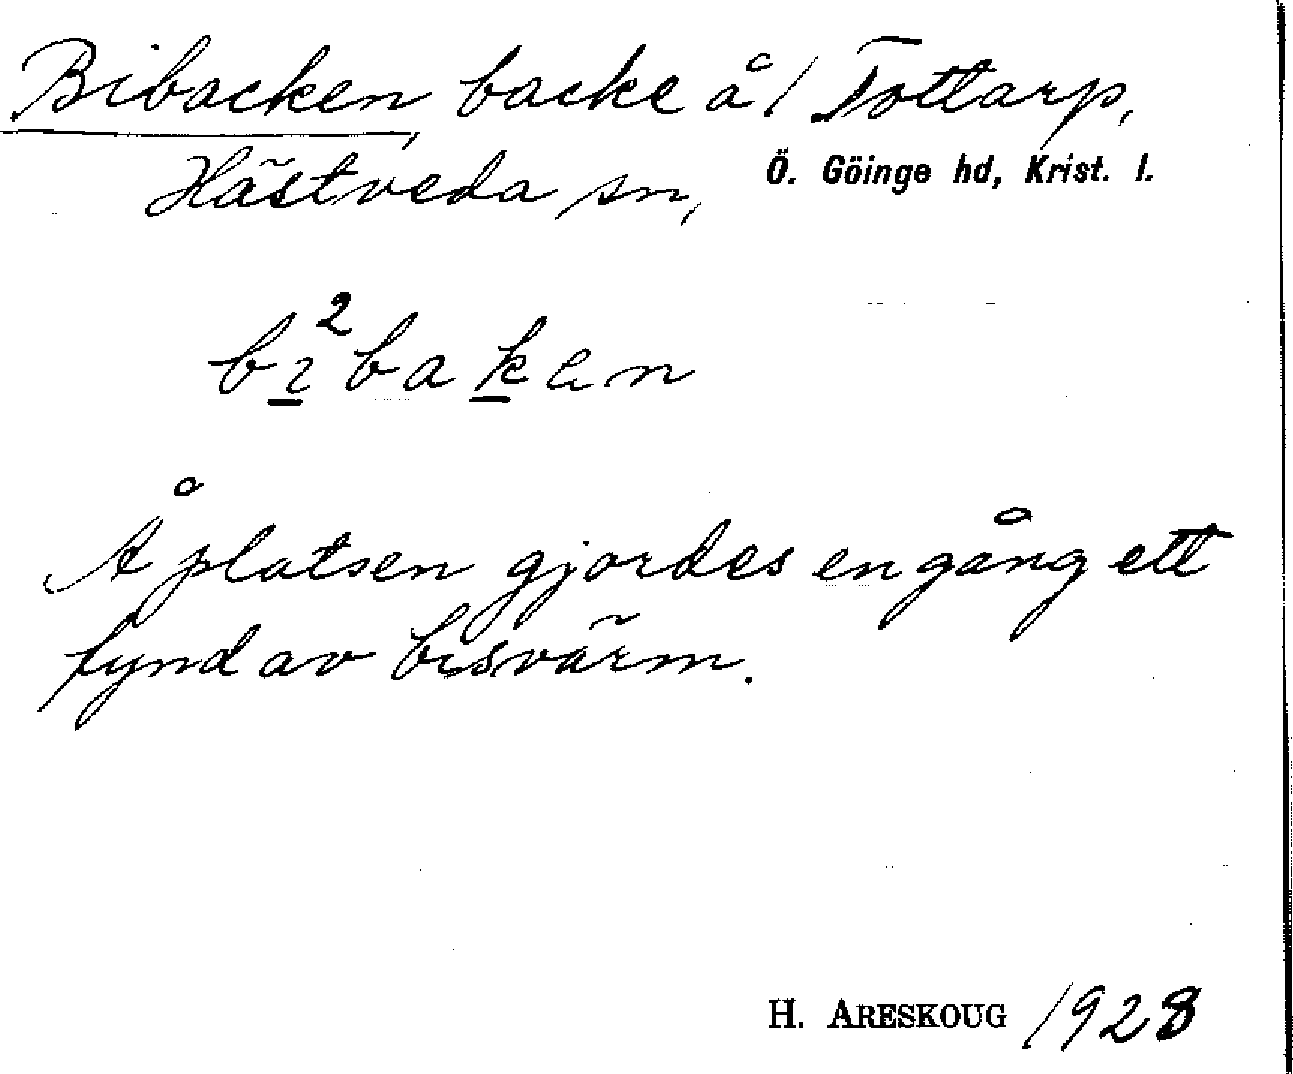 Bibacken, backe å / Tottarp,
Hästveda sn, Ö. Göinge hd, Krist. l.
bi²bakən
Å platsen gjordes en gång ett
fynd av bisvärm.
H. ARESKOUG 1928